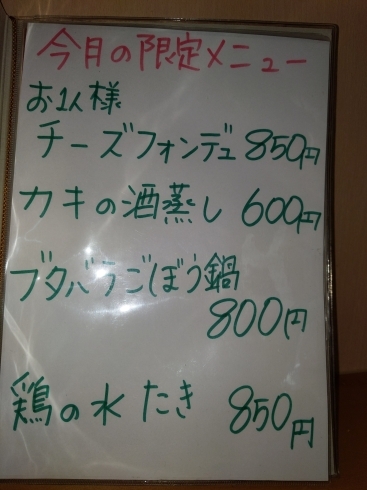 今月の限定メニュー
お1人様
チーズフォンデュ 850円
カキの酒蒸し 600円
ブタバラごぼう鍋
800円
鶏の水たき 850円